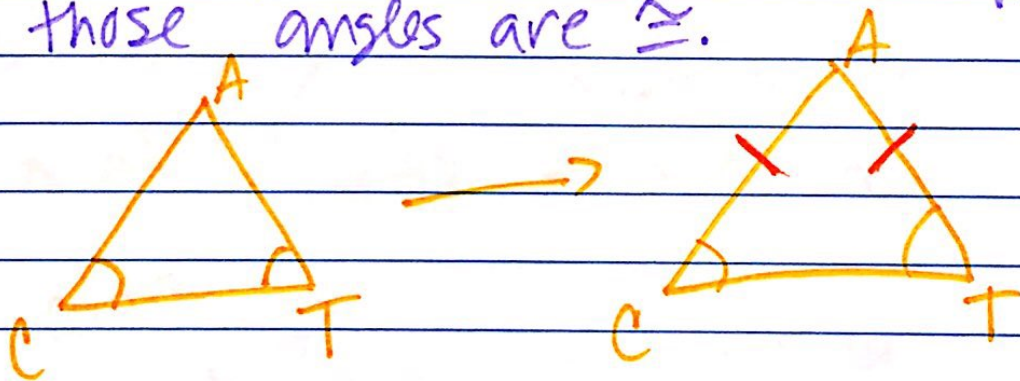 those angles are ≅.
A A
C T C T